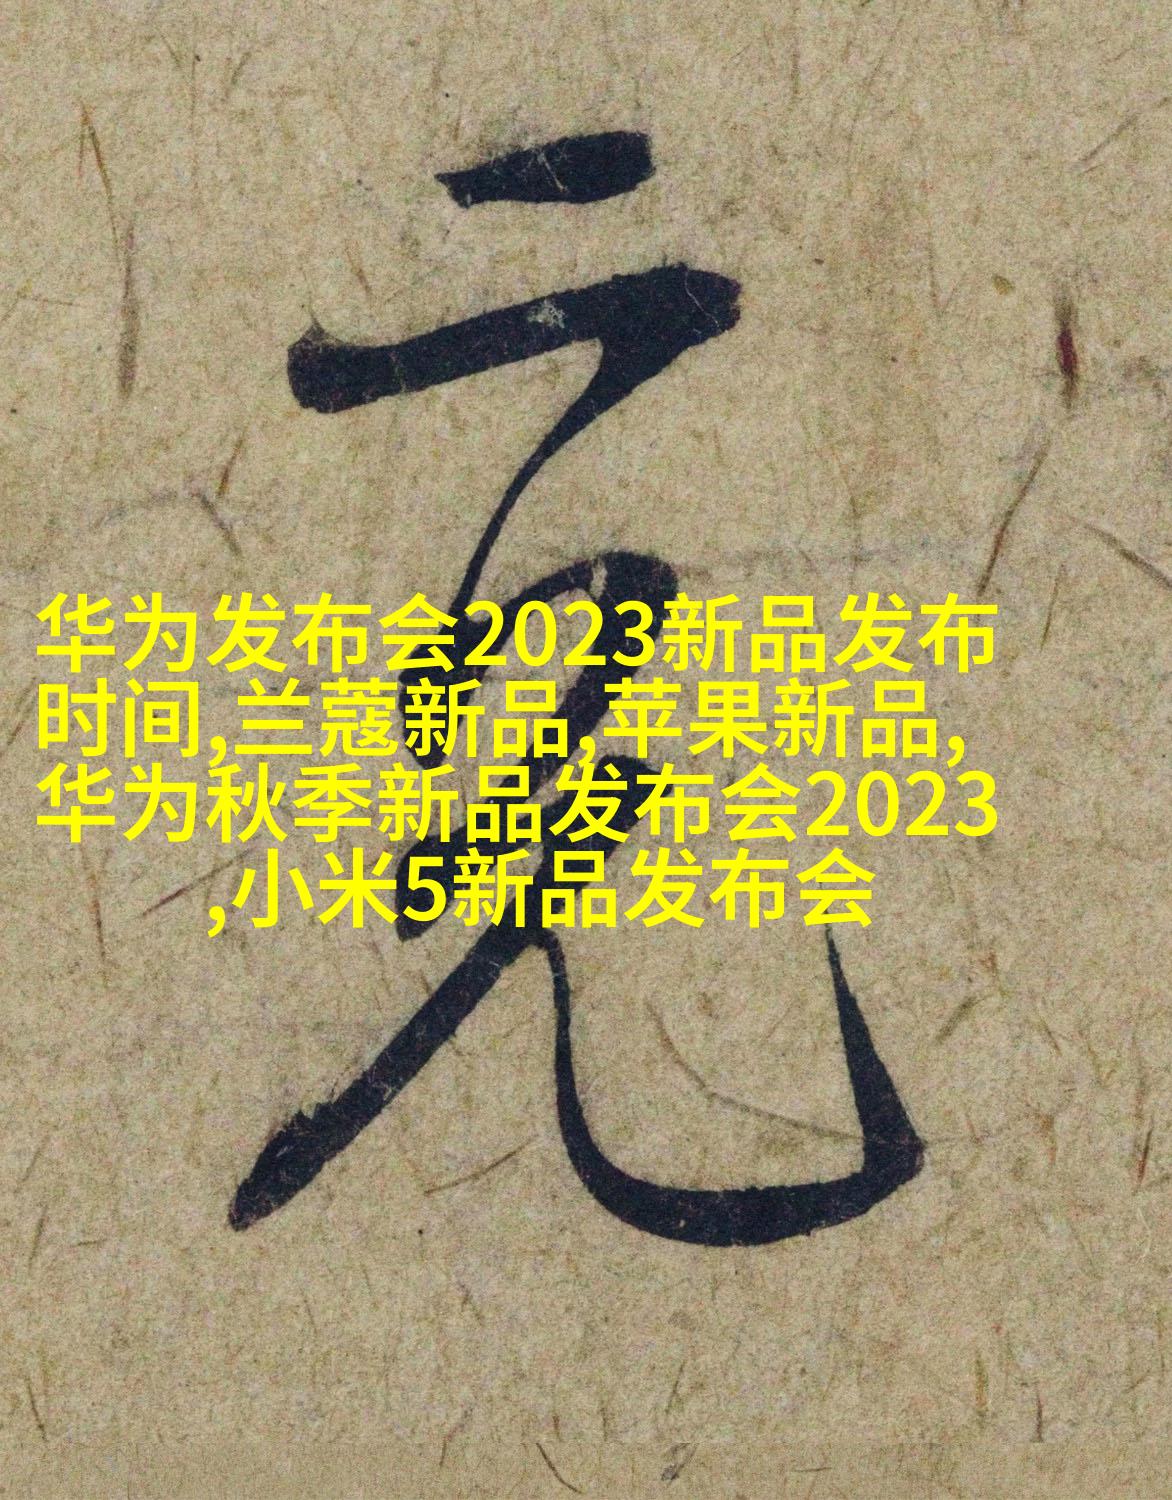 华为发布会2023新品发布
时间,兰蔻新品,苹果新品,
华为秋季新品发布会2023
,小米5新品发布会